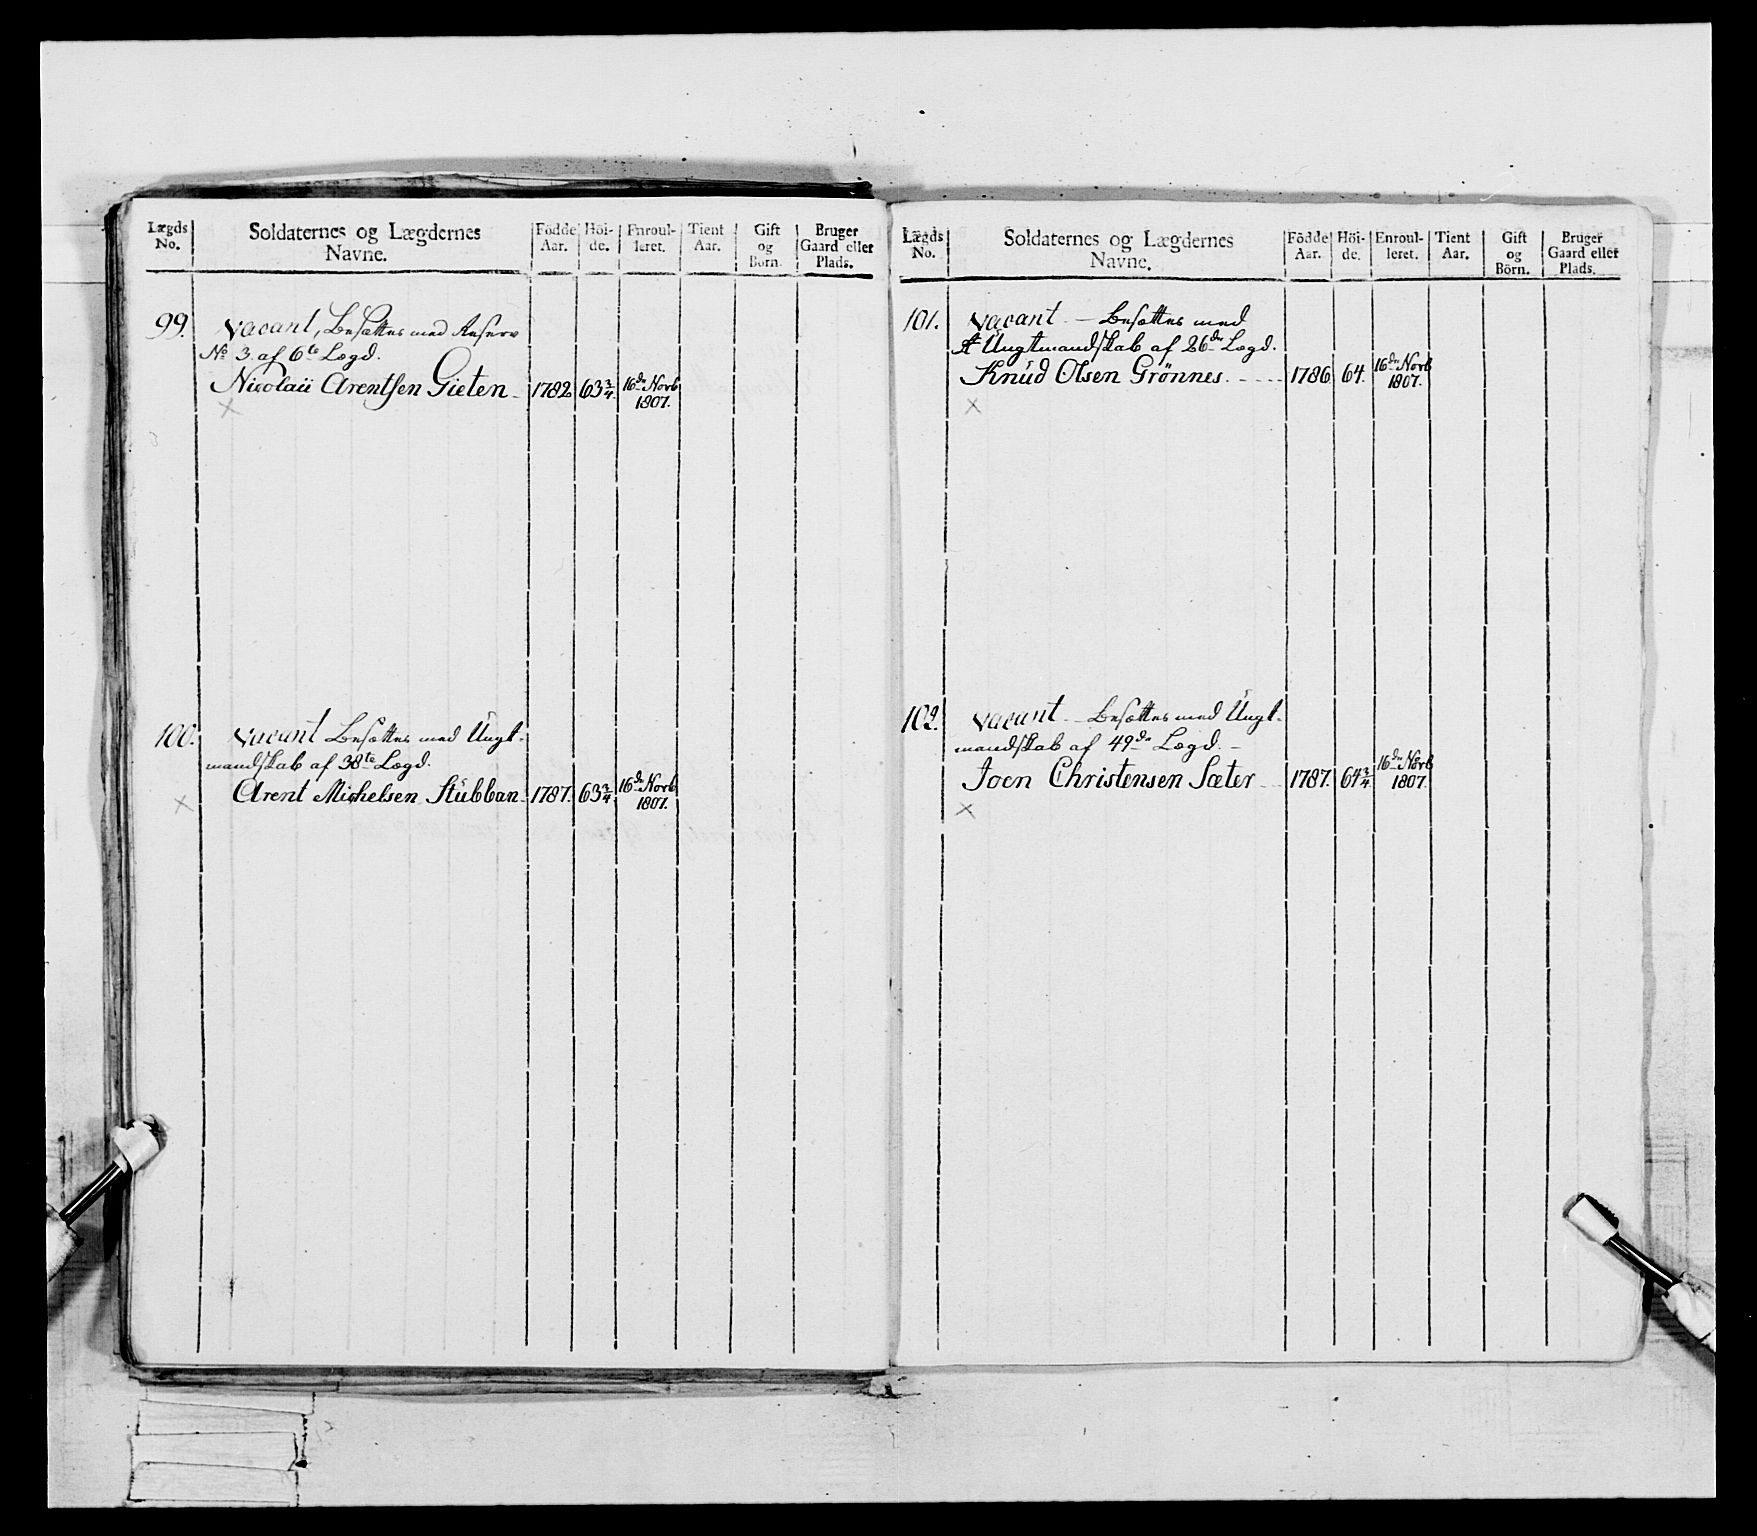 Lægds No.
Soldaternes og Lægdernes Navne.
Födde Aar.
Höi- de.
Enroul- leret.
Tient Aar.
Gift og Börn.
Bruger Gaard eller Plads.
99.
Vacant, Besættes med Reserv
No 3. af 6te Lægd.
Nicolaii Arentsen Gieten 1782 63 3/4 16de Novb 1807.
100.
Vacant Besættes med Ungt-
mandskab af 38te Lægd.
Arent Michelsen Stubban 1787. 63 3/4 16de Novb 1807.
Lægds No.
Soldaternes og Lægdernes Navne.
Födde Aar.
Höi- de.
Enroul- leret.
Tient Aar.
Gift og Börn.
Bruger Gaard eller Plads.
101.
Vacant - Besættes med
Et Ungtmandskab af 26de Lægd.
Knud Olsen Grönnes. 1786 64. 16de Novb 1807.
102.
Vacant - Besættes med Ungt-
mandskab af 49de Lægd.
Joen Christensen Sæter 1787. 64 3/4 16de Novb 1807.